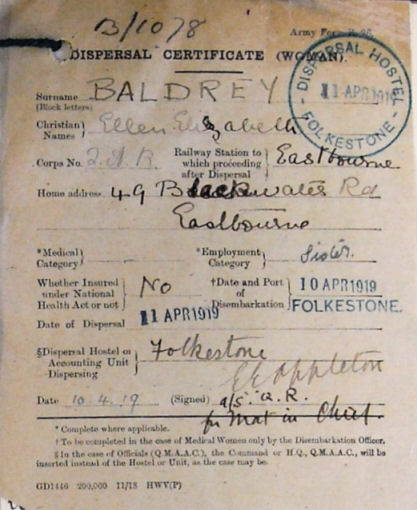 B/1078
Army Form B. 25.
DISPERSAL CERTIFICATE (WOMAN).
DISPERSAL HOSTEL
11 APR 1919
- FOLKESTONE -
Surname BALDREY
(Block letters)
Christian Names } Ellen Elizabeth
Corps No. Q.A.R. Railway Station to which proceeding after Dispersal } Eastbourne
Home address 49 Blackwater Rd
Eastbourne
*Medical Category } *Employment Category } Sister.
Whether Insured under National Health Act or not } No †Date and Port of Disembarkation } 10 APR 1919 FOLKESTONE.
Date of Dispersal 11 APR 1919
§Dispersal Hostel or Accounting Unit Dispersing } Folkestone
E Appleton
Date 10.4.19 (Signed) a/s. Q.R.
for Mat in Chief.
* Complete where applicable.
† To be completed in the case of Medical Women only by the Disembarkation Officer.
§ In the case of Officials (Q.M.A.A.C.), the Command or H.Q., Q.M.A.A.C., will be
inserted instead of the Hostel or Unit, as the case may be.
GD1446 200,000 11/18 HWV(P)